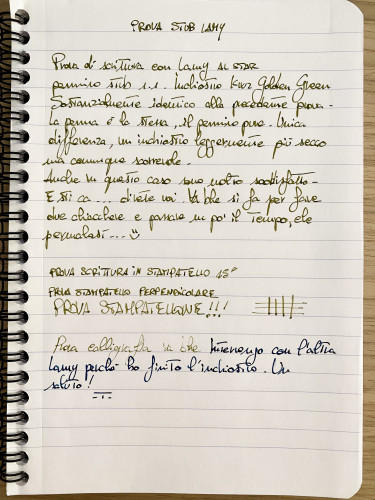 PROVA STUB LAMY
Prova di scrittura con Lamy AL STAR
pennino stub 1.1. Inchiostro Kwz Golden Green
Sostanzialmente identico alla precedente prova.
La penna è la stessa, il pennino pure. Unica
differenza, un inchiostro leggermente più secco
ma comunque scorrevole.
Anche in questo caso sono molto soddisfatto.
E si ca... direte voi. Và bè si fa per fare
due chiacchere e passare un po' il tempo, che
permalosi...
PROVA SCRITTURA IN STAMPATELLO 45°
PROVA STAMPATELLO PERPENDICOLARE
PROVA STAMPATELLONE!!!
Prova calligrafia va bè Intervengo con l'altra
Lamy perchè ho finito l'inchiostro. Un
saluto!